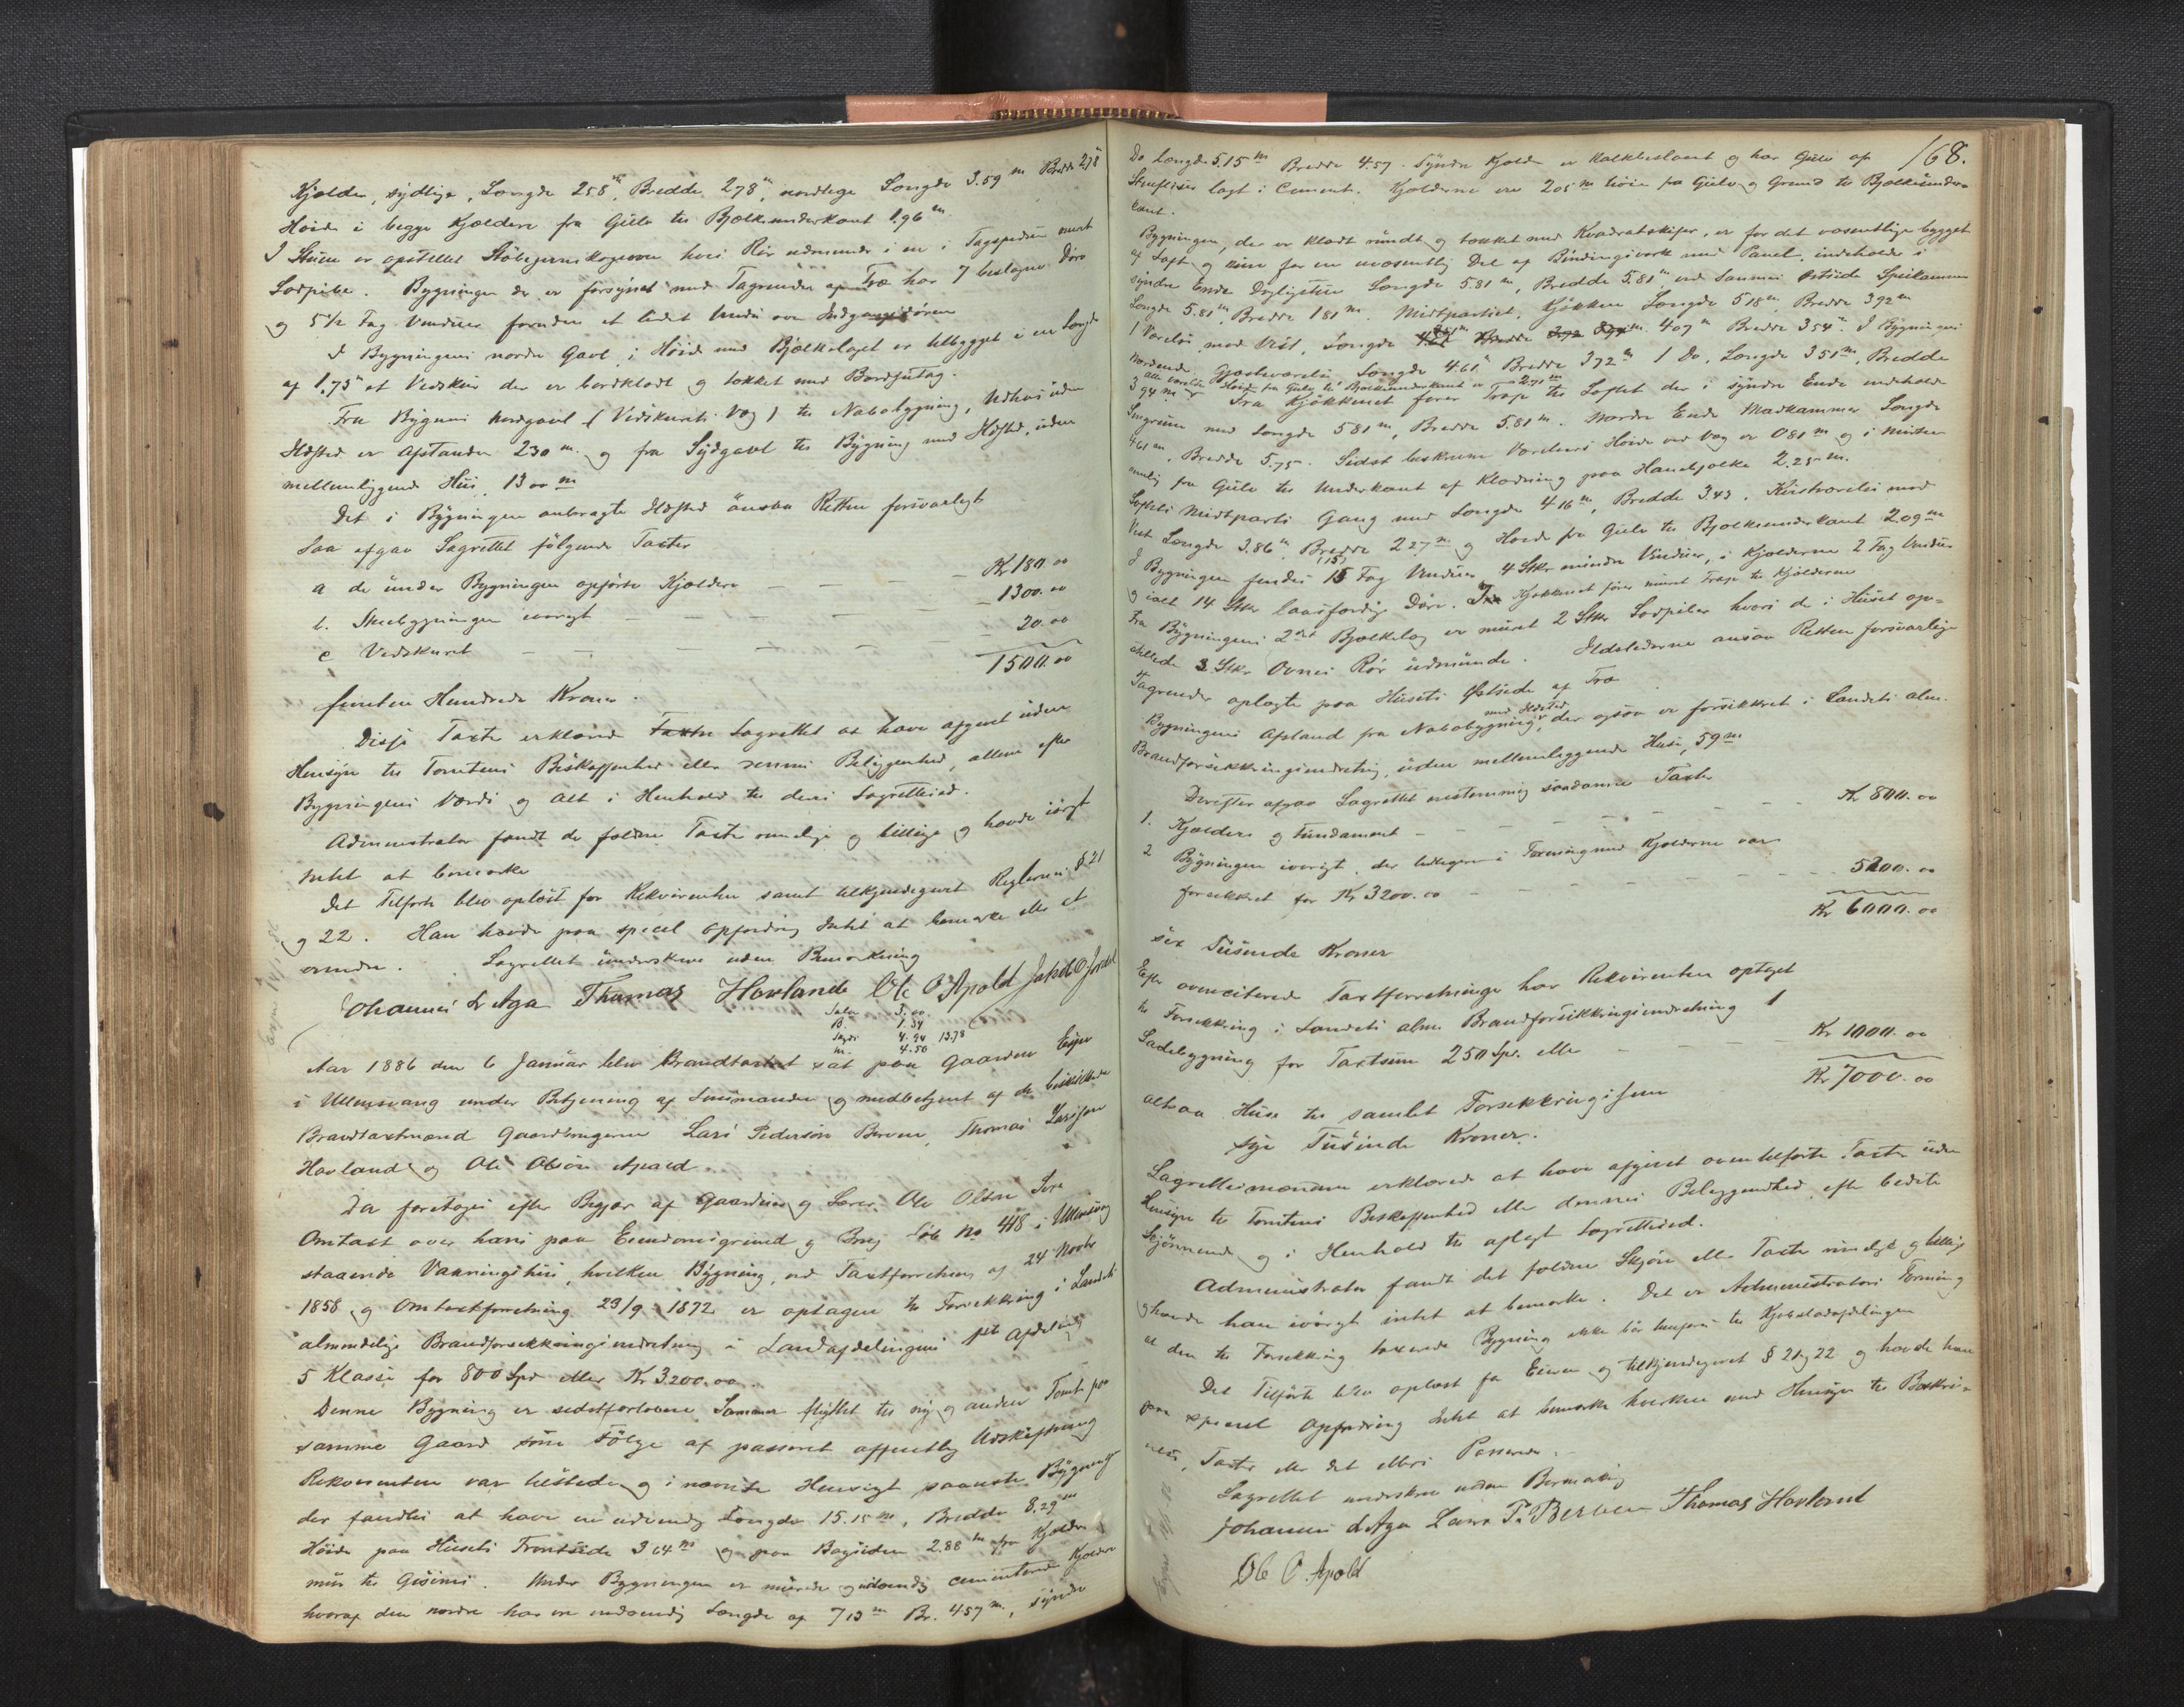 Kjælder, sydlige, Længde 258 m, Bredde 278 m, nordlige Længde 3.59 m Bredde 278
Høide i begge Kjældere fra Gulv til Bjælkeunderkant 1.96 m.
I Stuen er opstillet Støbejernskogeovn hvis Rør udmunder i en i Tagspidsen muret
Sodpibe. Bygningen der er forsynet med Tagrender af Træ har 7 beslagne Døre
og 5 1/2 Fag Vinduer foruden et lidet Vindu over Indgangsdøren
I Bygningens nordre Gavl, i Høide med Bjælkelaget er tilbygget i en Længde
af 1.75 m et Vedskur der er bordklædt og tækket med Bord
Fra Bygnins nordgavl (Vedskurets Væg) til Nabobygning, Udhus uden
Ildsted er Afstanden 230 m. og fra Sydgavl til Bygning med Ildsted, uden
mellemliggende Hus, 13 00 m
Det i Bygningen anbragte Ildsted ansaa Retten forsvarligt
Saa afgav Lagrettet følgende Taxter
a de under Bygningen opførte Kjældere — — — Kr 180.00
b. Stuebygningen iøvrigt — — — — 1300.00
c Vedskuret — — — — — 20.00
1500.00
femten Hundrede Kroner.
Disse Taxter erklærede Taxter Lagrettet at have afgivet uden
Hensyn til Tomtens Beskaffenhed eller dennes Beliggenhed, allene efter
Bygningens Værdi og Alt i Henhold til deres Lagrettesed.
Administrator fandt de faldne Taxter rimelige og billige og havde iøvrigt
Intet at bemærke
Det Tilførte blev oplæst for Rekvirenten samt tilkjendegivet Reglernes § 21
og 22. Han havde paa speciel Opfordring Intet at bemærke eller at
erindre. Lagrettet underskrev uden Bemærkning
Johannes L Aga Thomas Hovland Ole O Apold Jakob O
3.00
B. 1.34
4.94 1378
4.50
Aar 1886 den 6 Januar blev Brandtaxt sat paa Gaarden
i Ullensvang under Betjening af Lensmanden og medbetjent af de beskikkede
Brandtaxtmænd Gaardbrugerne Lars Pedersøn Berven, Thomas Larssøn
Hovland og Ole Olsøn Apold.
Da foretoges efter Begjær af Gaardeier og Lærer Ole Olsøn
Omtaxt over hans paa Eiendomsgrund og Brug Løb No 448 i Ullensvang
staaende Vaaningshus, hvilken Bygning, ved Taxtforretning af 24 Novbr
1858 og Omtaxtforretning 29/9 1872 er optagen til Forsekkring i Landets
almindelige Brandforsekkringsindretning i Landafdelingens 1st Afdeling
5 Klasse for 800 Spd eller Kr 3200.00.
Denne Bygning er sidstforløbne Sommer flyttet til ny og anden Tomt paa
samme Gaard som Følge af passeret offentlig Udskiftning
Rekvirenten var tilstede og i nævnte Hensigt paaviste Bygningen
der fandtes at have en udvendig Længde 15.15 m, Bredde 8.29 m
Høide paa Husets Frontside 364 m og paa Bagsiden 2.88 m fra Kjælder
mur til Gesims. Under Bygningen er murede og indvendig cementerede Kjældere
hvoraf den nordre har en indvendig Længde af 713 m Br. 457 m., søndre
168.
Do Længde 5.15 m Bredde 4.57. Søndre Kjælder er kalkbeslaaet og har Gulv af
Stenfliser lagt i Cement. Kjælderne ere 205 m høie fra Gulv og Grund til Bjælkeunder-
kant.
Bygningen, der er klædt rundt og tækket med Kvadratskifer, er for det væsentlige bygget
af Laft og kun for en uvæsentlig Del af Bindingsværk med Panel, indeholder i
søndre Ende Dagligstue Længde 5.81 m, Bredde 5.81 m, ved Sammes Østside Spisekammer
Længde 5.81 m, Bredde 181 m. Midtpartiet, Kjøkken Længde 518 m, Bredde 392 m
1 Værelse mod Vest, Længde 407 m Bredde 354 m. I Bygningens
Nordende Gjesteværelse Længde 4.61 m Bredde 372 m 1 Do, Længde 351 m, Bredde
394 m alle værelsers Høide fra Gulv til Bjælkeunderkant er 2.51 m Fra Kjøkkenet fører Trap til Loftet der i søndre Ende indeholder
med Længde 581 m, Bredde 5.81 m. Nordre Ende Madkammer Længde
461 m, Bredde 5.75. Sidst beskrevne Værelsers Høide ved Væg er 081 m og i Midten
nemlig fra Gulv til Underkant af Klædning paa Hanebjælke 2.25 m.
Loftets Midtparti Gang med Længde 416 m, Bredde 343. Kvistværelse mod
Vest Længde 3.86 m, Bredde 227 m og Høide fra Gulv til Bjælkeunderkant 2.09 m
I Bygningen findes 15 (15) Fag Vinduer, 4 Stkr mindre Vinduer, i Kjælderne 2 Fag Vinduer
og ialt 14 Stkr laasfærdige Døre. Fra Kjøkkenet fører muret Trap til Kjælderne
Fra Bygningens 2det Bjælkelag er muret 2 Stkr Sodpiber hvori de i Huset op-
stillede 3 Stkr Ovnes Rør udmunde. Ildstederne ansaa Retten forsvarlige
Tagrender oplagte paa Husets Østside af Træ
Bygningens Afstand fra Nabobygning med Ildsted, der ogsaa er forsikkret i Landets alm.
Brandforsikkringsindretning, uden mellemliggende Huse, 59 m
Derefter afgav Lagrettet enstemmig saadanne Taxter
1. Kjældere og Fundament — — — — Kr 800.00
2 Bygningen iøvrigt, der tidligere i Forening med Kjælderne var
forsekkret for Kr 3200.00 — — — — 5200.00
Kr 6000.00
sex Tusinde Kroner
Efter ovenciterede Taxtforretninger har Rekvirenten optaget
til Forsekkring i Landets alm. Brandforsikkringsindretning 1
Ladebygning for Taxtsum 250 Spd. eller — — Kr 1000.00
Kr 7000.00
altsaa Huse til samlet Forsekkringssum
syv Tusinde Kroner.
Lagrettesmændene erklærede at have afgivet oventilførte Taxter uden
Hensyn til Tomtens Beskaffenhed eller dennes Beliggendhed, efter bedste
Skjønnende og i Henhold til aflagt Lagrettesed.
Administrator fandt det faldne Skjøn eller Taxter rimelige og billig
og havde han iøvrigt intet at bemærke. Det er Administrators Formening
at den til Forsekkring taxerede Bygning ikke bør henføres til Kjøbstadafdelingen
Det Tilførte blev oplæst for Eieren og tilkjendegivet § 21 og 22 og havde han
paa speciel Opfordring Intet at bemærke hverken med Hensyn til Beskri-
velse, Taxter eller det ellers Passerede.
Lagrettet underskrev uden Bemærkning
Johannes L Aga Lars P. Berven Thomas Hovland
Ole O. Apold